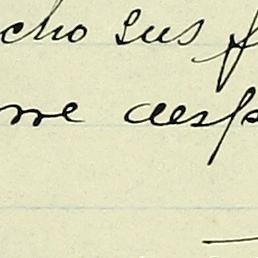 cho sus f
me desp